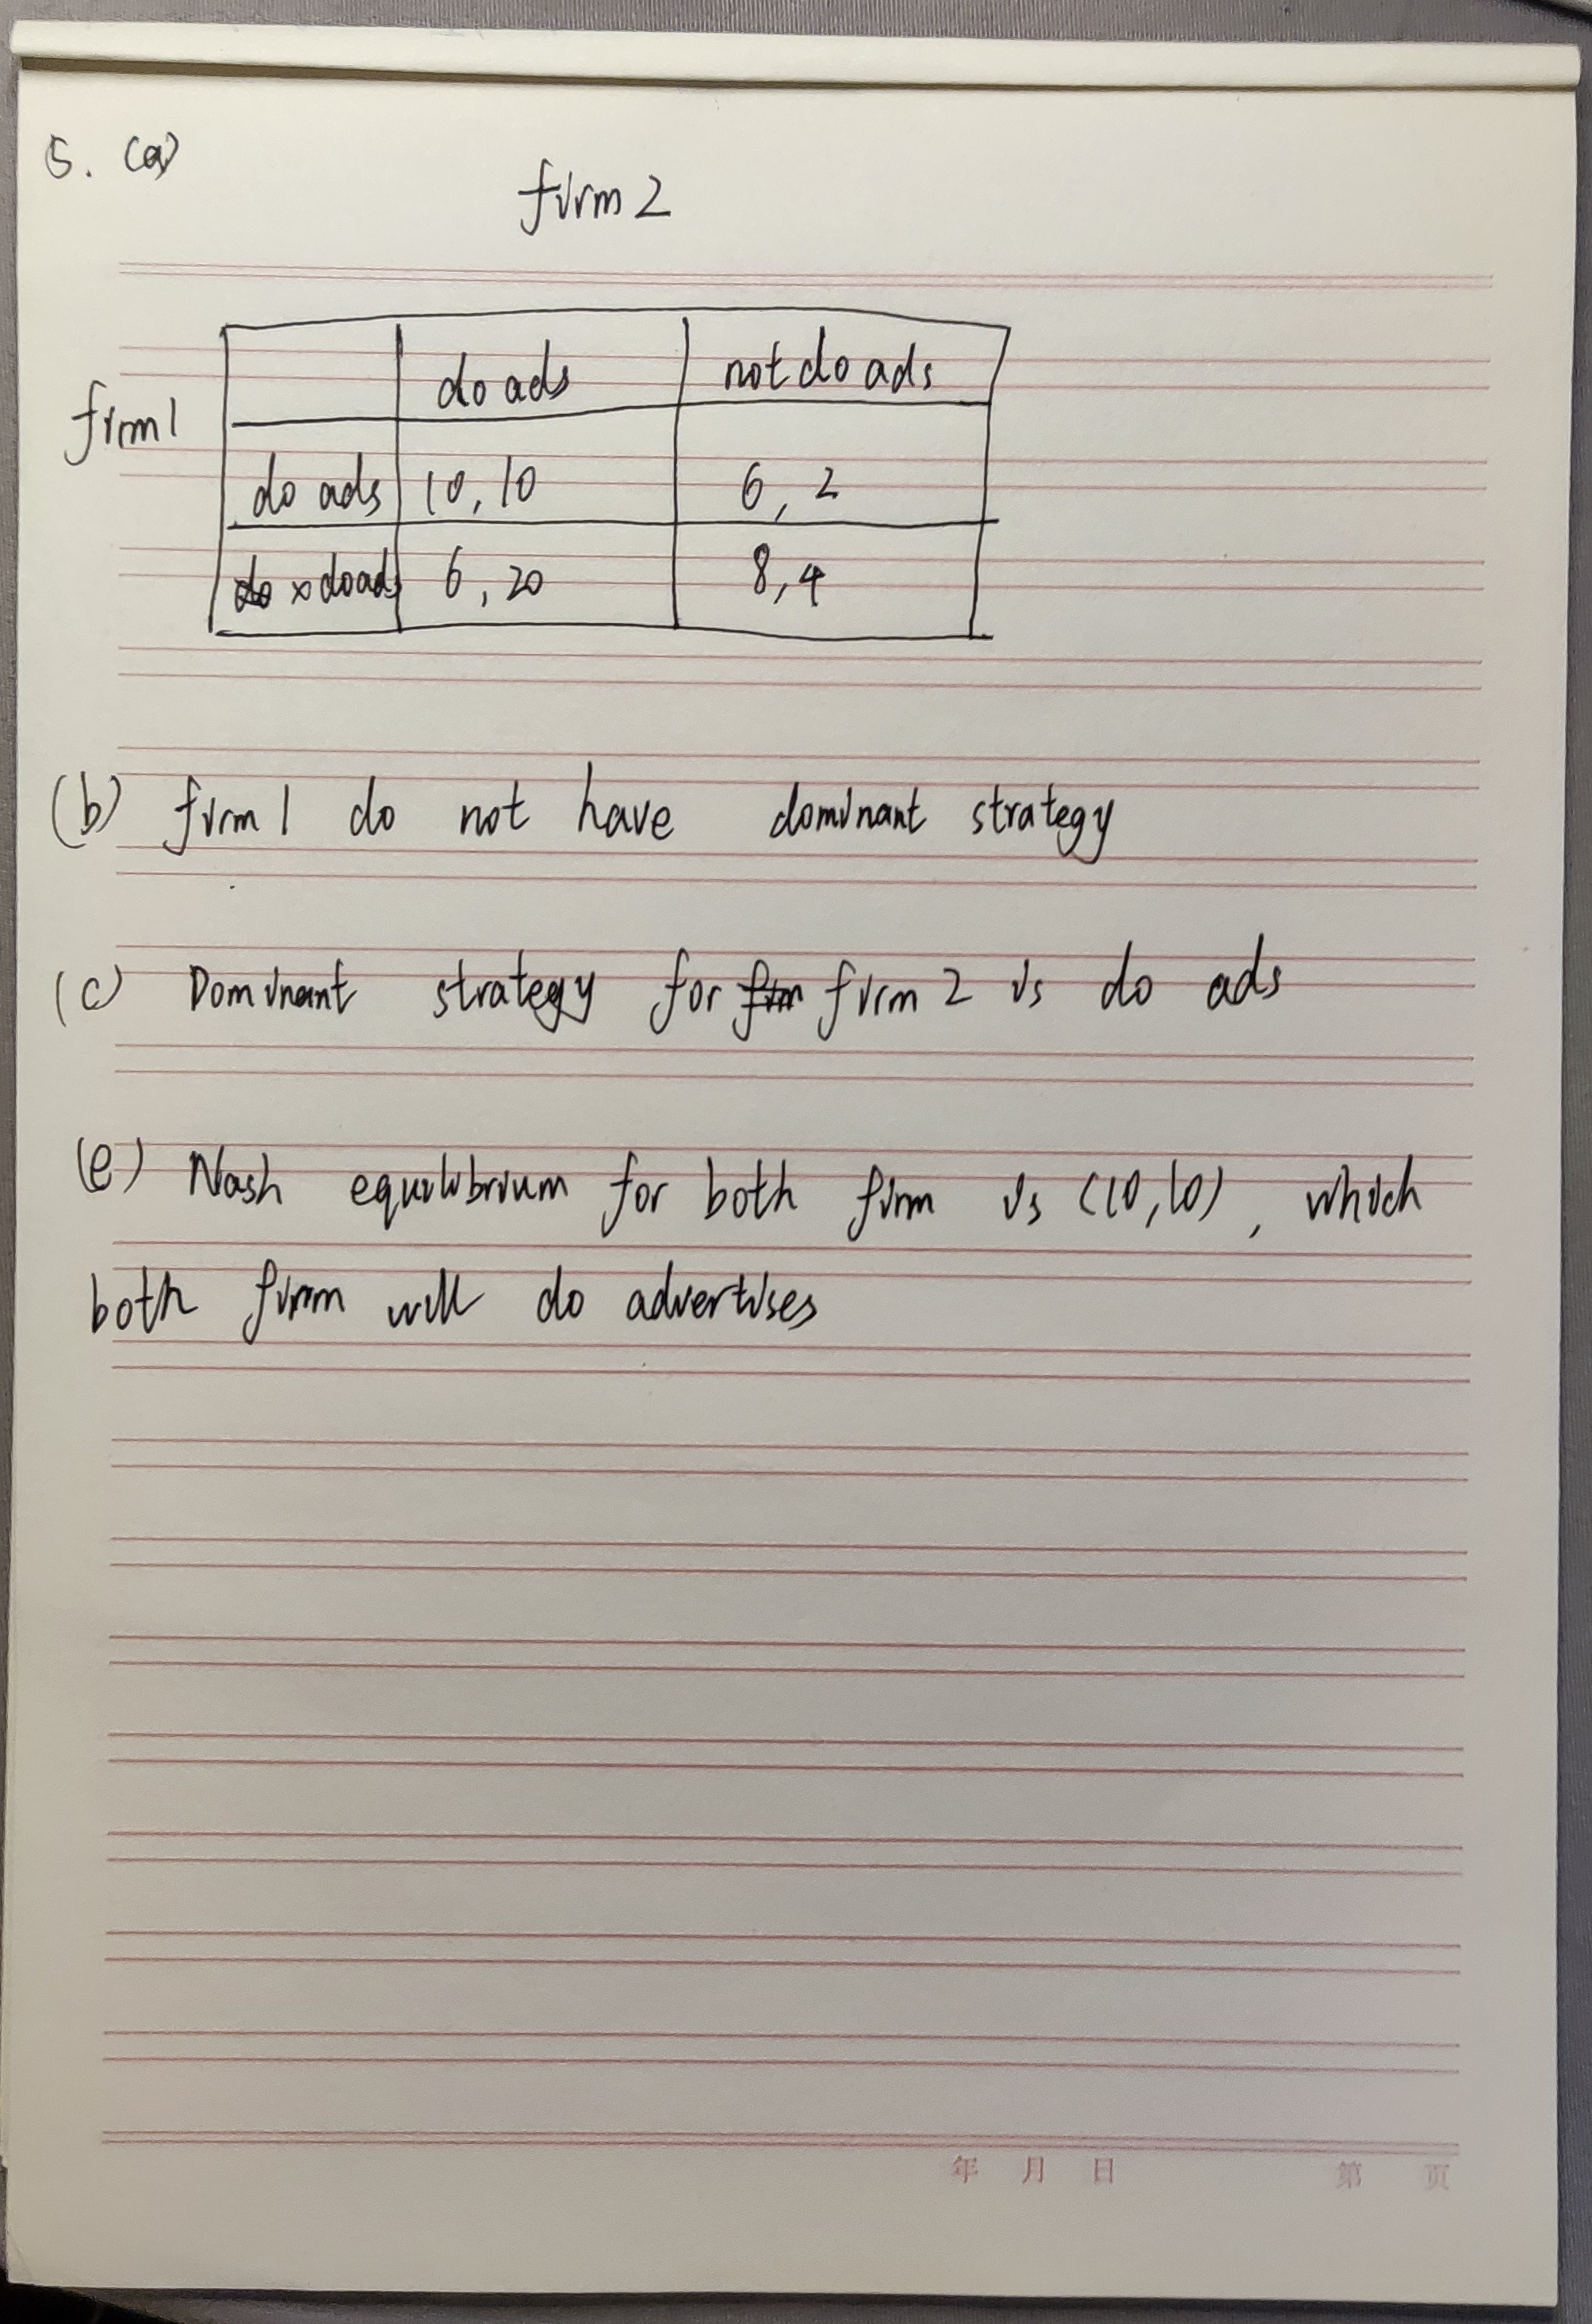 5. (a)
firm 2
do ads not do ads
firm 1
do ads 10, 10 6, 2
× do ads 6, 20 8, 4
(b) firm 1 do not have dominant strategy
(c) Dominant strategy for firm 2 is do ads
(e) Nash equilibrium for both firm is (10, 10), which
both firm will do advertises
年 月 日 第 页